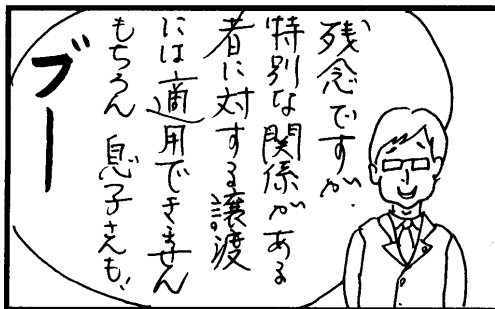 残念ですが、
特別な関係がある
者に対する譲渡
には適用できません
もちろん 息子さんも、
ブー